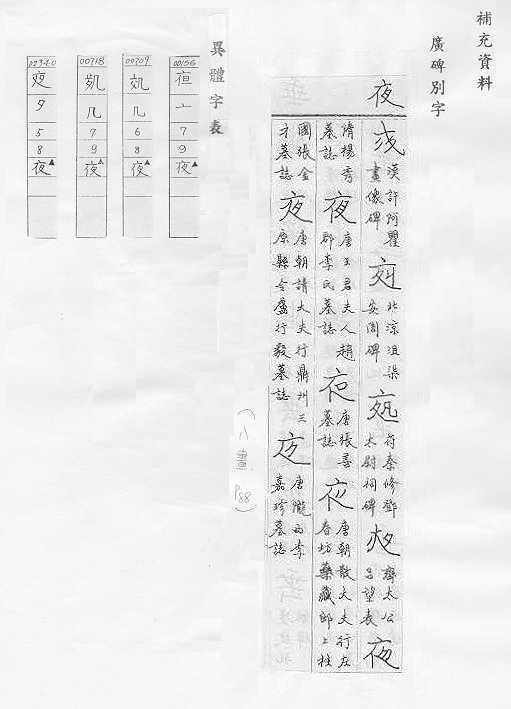 補充資料
廣碑別字
夜
漢許阿瞿畫像碑
北涼沮渠安周碑
苻秦修鄧太尉祠碑
齊太公呂望表
夜
隋楊秀墓誌
夜
唐王君夫人趙郡李氏墓誌
唐張善墓誌
唐朝散大夫行左春坊藥藏郎上柱
國張金才墓誌
夜
唐朝請大夫行鼎州三原縣令盧行毅墓誌
唐隴西李嘉珍墓誌
(八畫 P88)
異體字表
00156
亠
7
9
夜▲
00709
几
6
8
夜▲
00718
几
7
9
夜▲
夕
5
8
夜▲